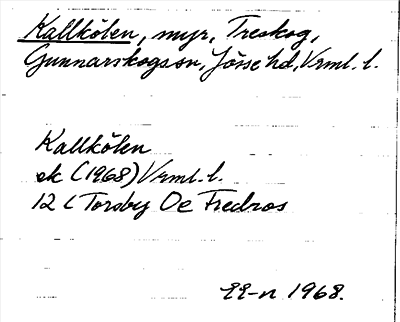 Kallkölen, myr, Treskog,
Gunnarskogs sn, Jösse hd, Vrml. l.
Kallkölen
ek (1968) Vrml. l.
12 C Torsby De Fredros
1968.